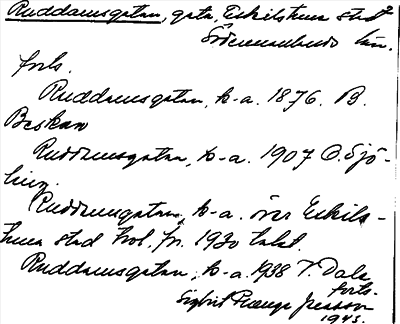 Ruddamsgatan, gata, Eskilstuna stad
Södermanlands län.
forts.
Ruddamsgatan, k-a. 1876. B.
Boskow
Ruddamsgatan, k-a. 1907 O. Sjö-
ling.
Ruddamsgatan, k-a. över Eskils-
tuna stad trol. fr. 1920 talet.
Ruddamsgatan, k-a. 1938 T. Dale
forts.
Sigbrit Plænge Jacobson
1945.